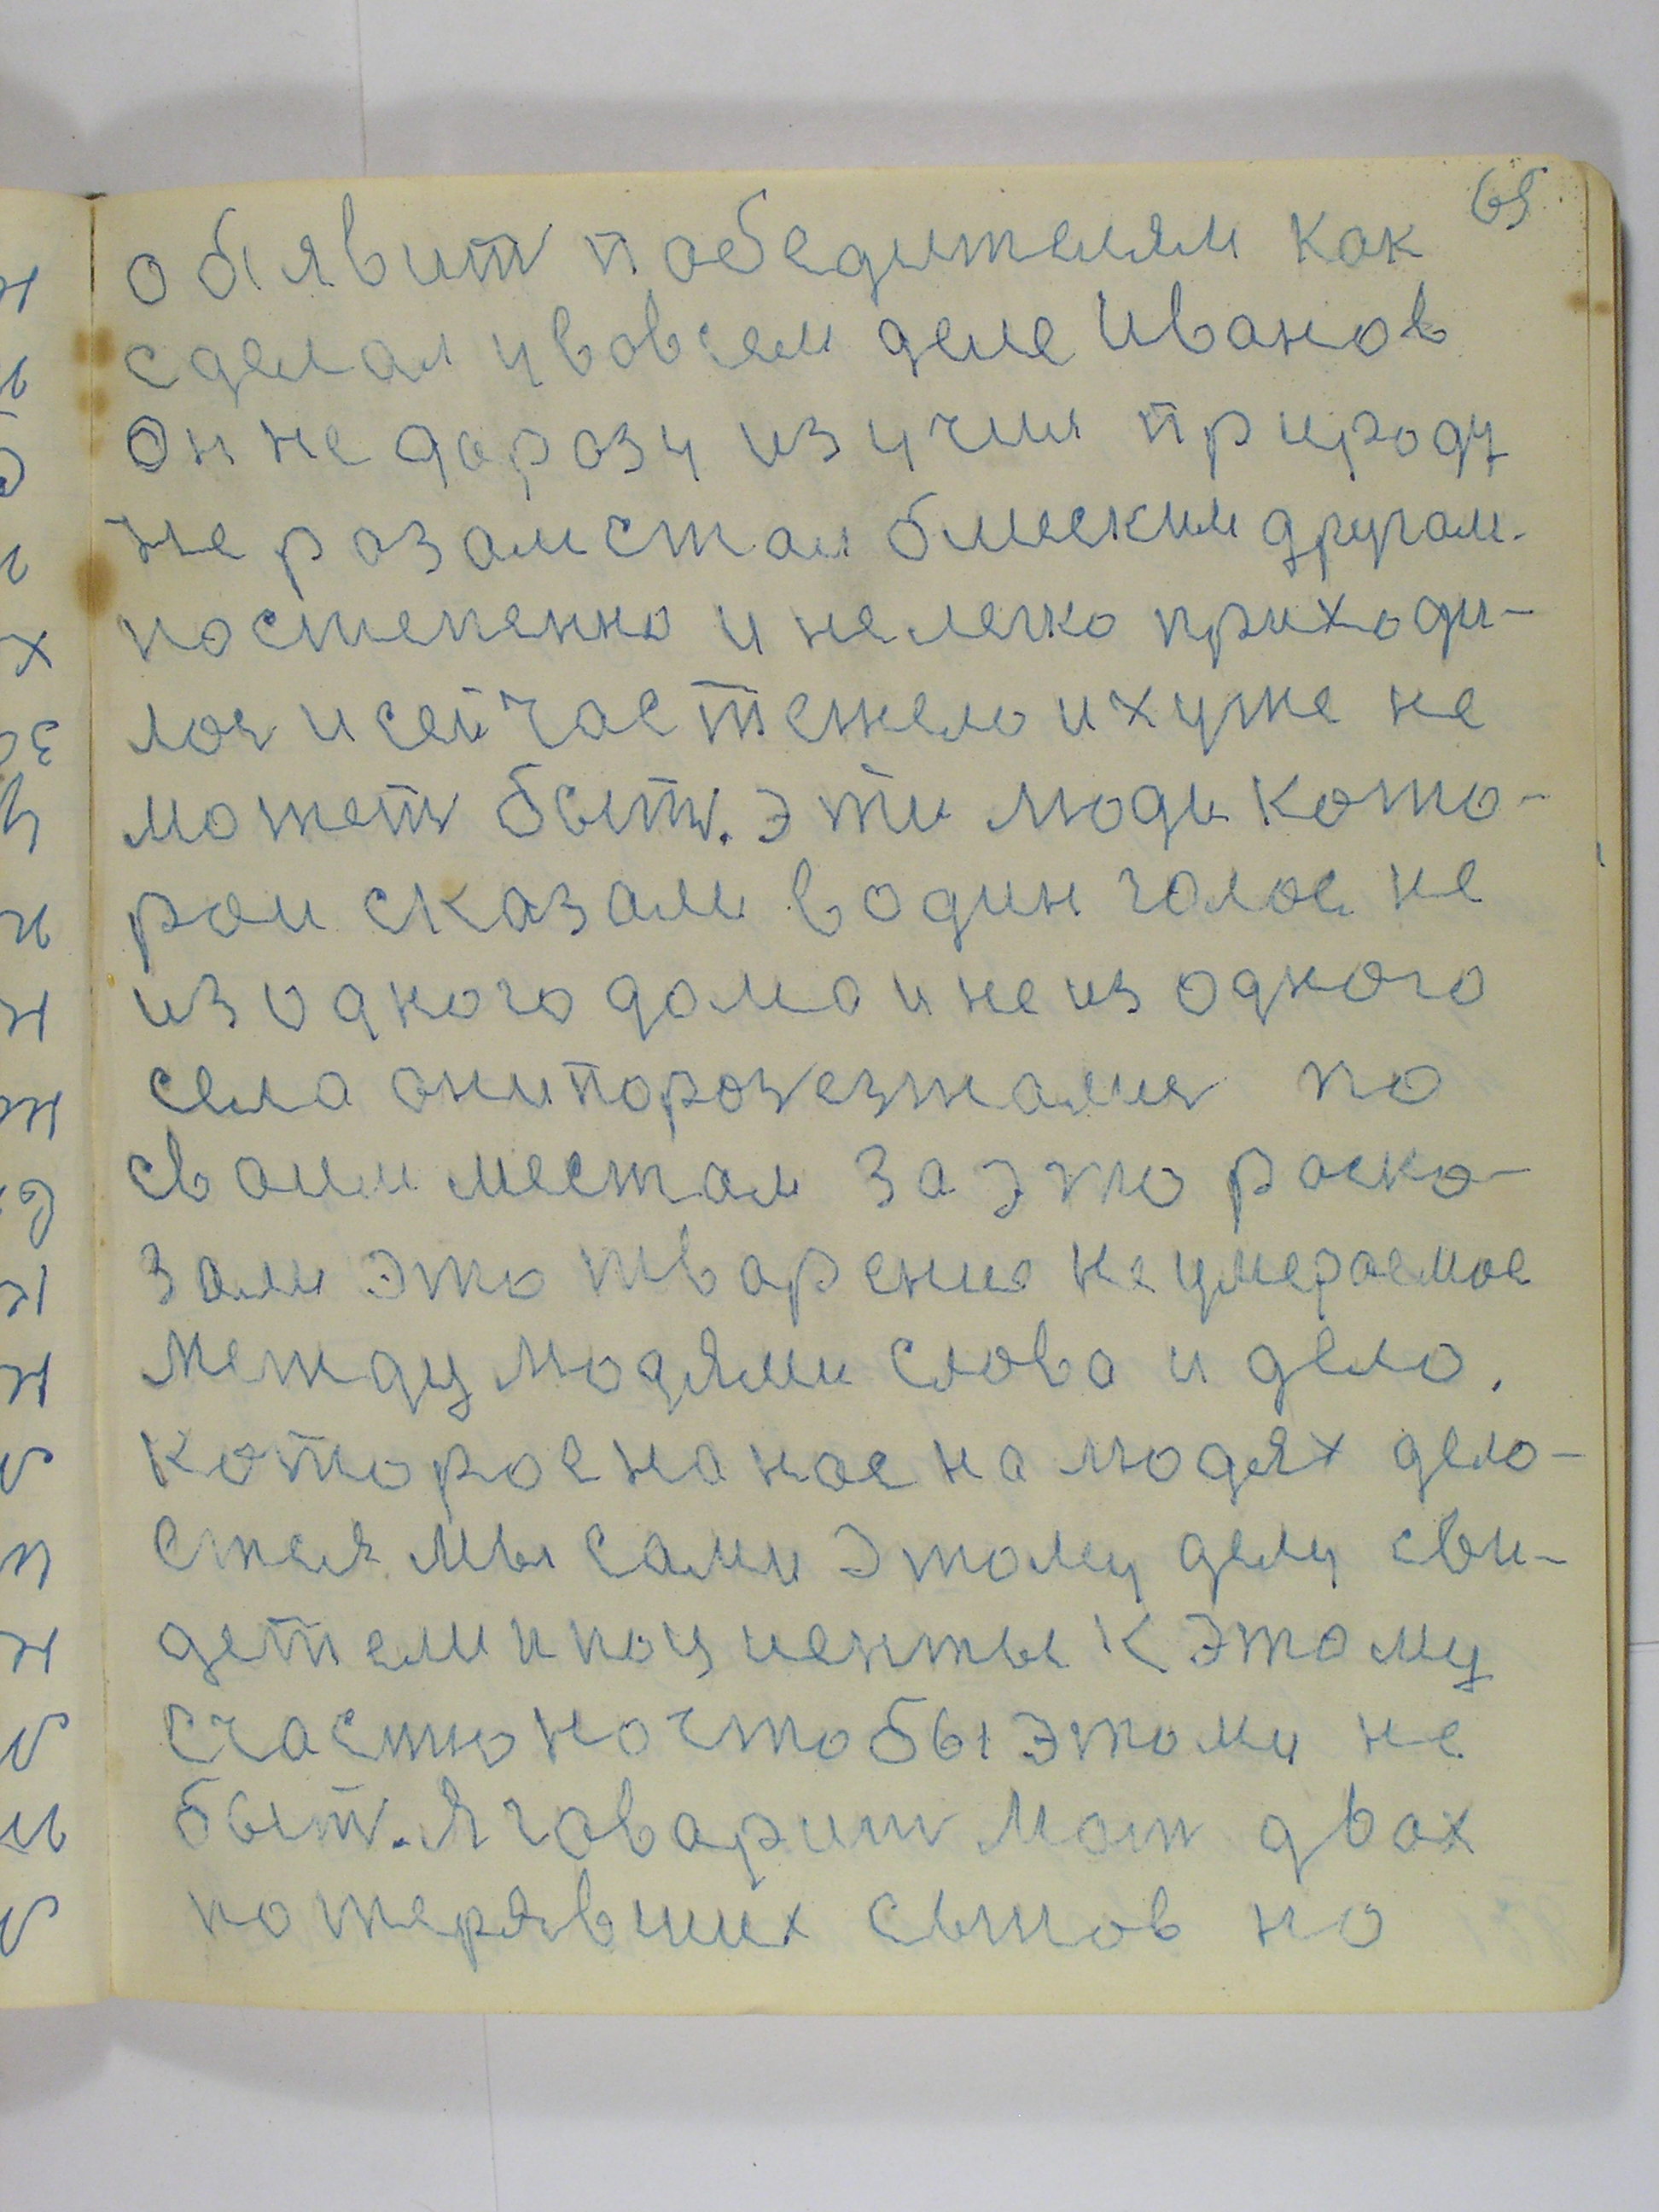 65
обявить победителям как
сделал увовсем деле Иванов
Он не доразу изучил природу
не разам стал блиским другам.
постепенно и не легко приходи-
лос и сейчас тежело и хуже не
может быть. эти люди кото-
рои сказали в один голос не
из одного дома и не из одного
села они поразезжались по
своим местам за это раска-
зали это тварение не умераемое
между людями слова и дело.
которое на нас на людях дело-
ется мы сами этому делу сви-
детели и пациенты к этому
счастю но чтобы этому не
быть. Я говарит мать двох
потерявших сынов но